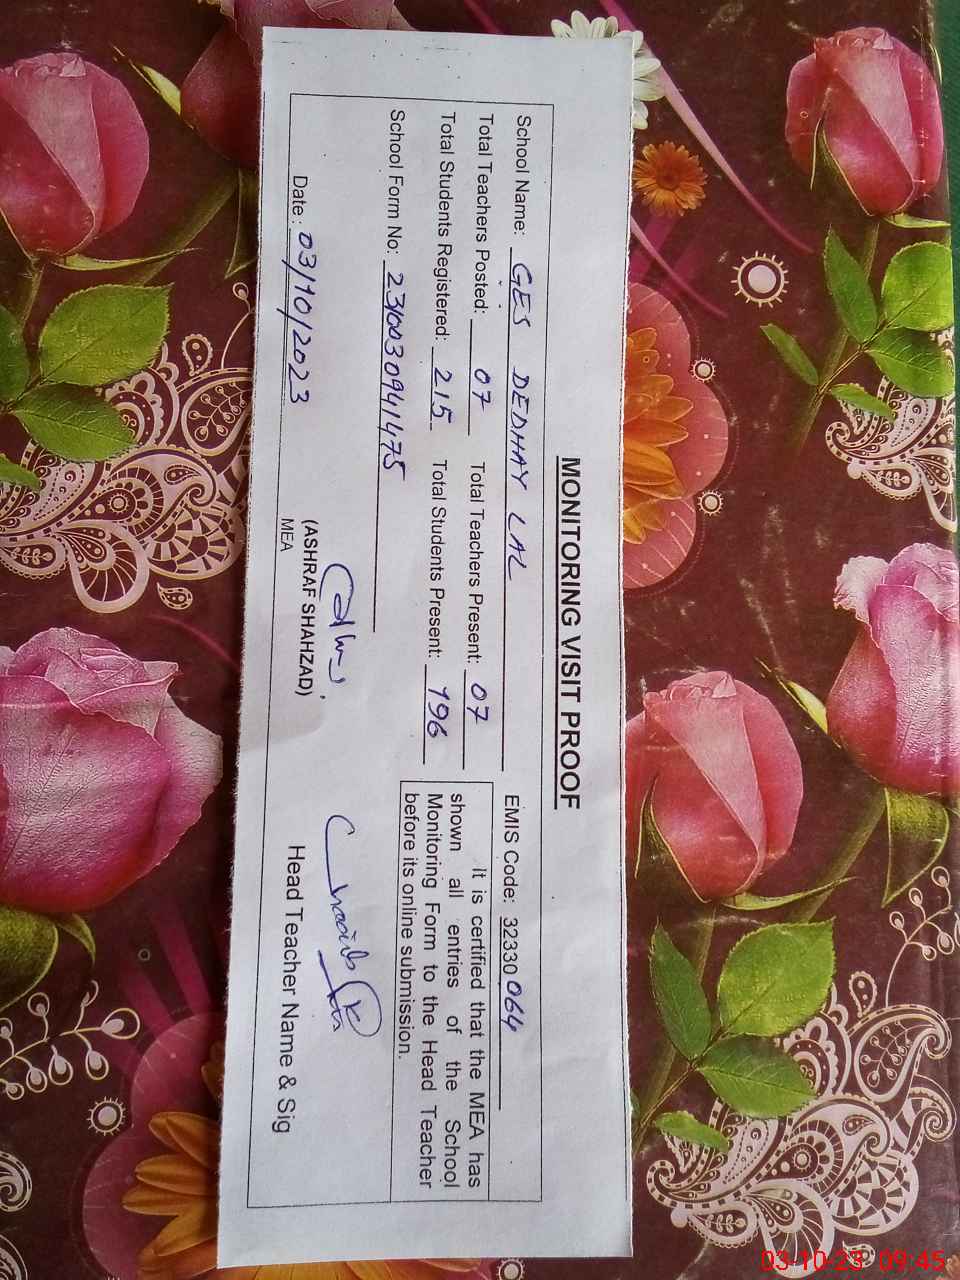 MONITORING VISIT PROOF
School Name: GES DEDHAY LAL EMIS Code: 32330064
Total Teachers Posted: 07 Total Teachers Present: 07
Total Students Registered: 215 Total Students Present: 196
School Form No: 2310030941475
it is certified that the MEA has
shown all entries of the School
Monitoring Form to the Head Teacher
before its online submission.
(ASHRAF SHAHZAD)
MEA
Date: 03/10/2023
Head Teacher Name & Sig
03-10-23 09:45